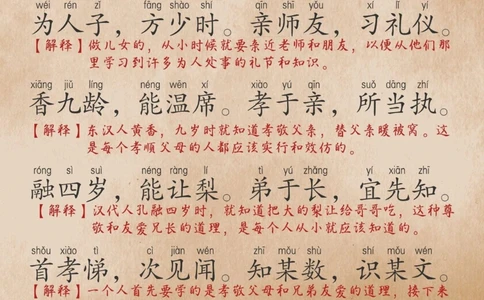 wéi rén zǐ fāng shào shí qīn shī yǒu xí lǐ yí
为人子，方少时。亲师友，习礼仪。
【解释】做儿女的，从小时候就要亲近老师和朋友，以便从他们那
里学习到许多为人处事的礼节和知识。
xiāng jiǔ líng néng wēn xí xiào yú qīn suǒ dāng zhí
香九龄，能温席。孝于亲，所当执。
【解释】东汉人黄香，九岁时就知道孝敬父亲，替父亲暖被窝。这
是每个孝顺父母的人都应该实行和效仿的。
róng sì suì néng ràng lí tì yú zhǎng yí xiān zhī
融四岁，能让梨。弟于长，宜先知。
【解释】汉代人孔融四岁时，就知道把大的梨让给哥哥吃，这种尊
敬和友爱兄长的道理，是每个人从小就应该知道的。
shǒu xiào tì cì jiàn wén zhī mǒu shù shí mǒu wén
首孝悌，次见闻。知某数，识某文。
【解释】一个人首先要学的是孝敬父母和兄弟友爱的道理，接下来